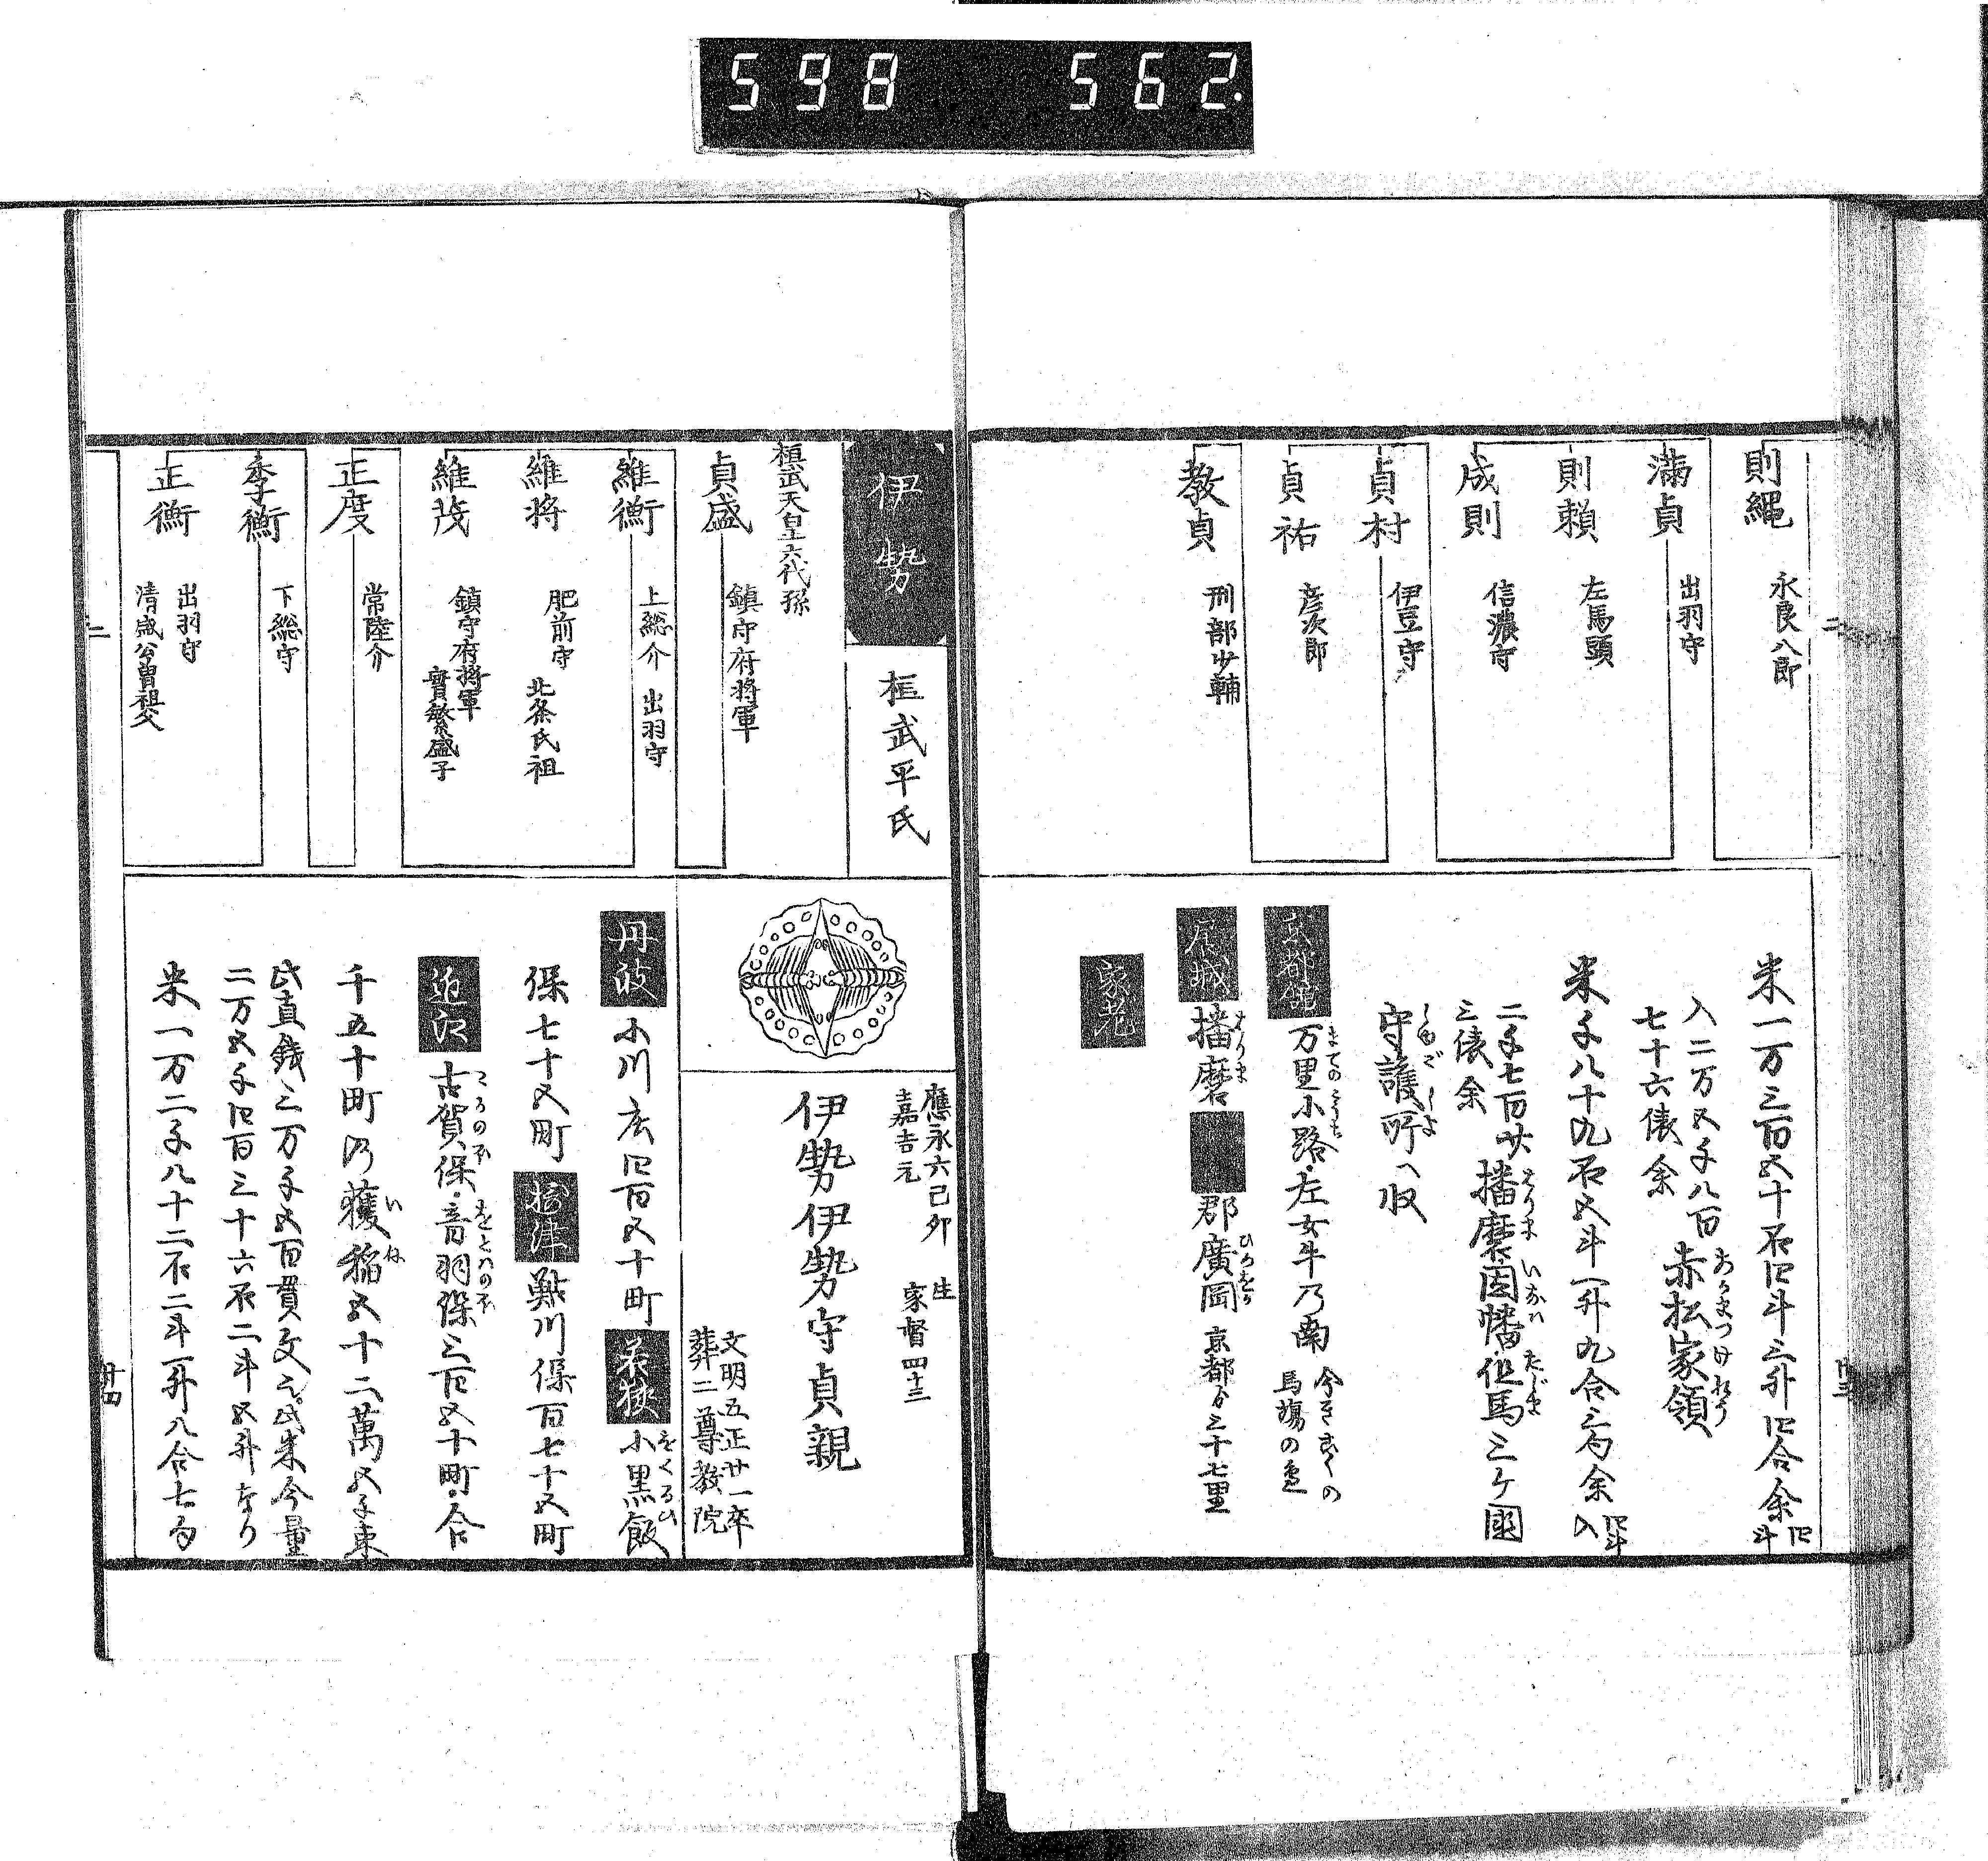 598 562.
則繩 永良八郎
滿貞 出羽守
則賴 左馬頭
成則 信濃守
貞村 伊豆守
貞祐 彦次郎
教貞 刑部少輔
米一万三百五十石四斗三升四合余 四斗
入二万五千八百
七十六俵余
赤松家領
あかまつけれう
米千八十九石五斗一升九合三勺余 四斗入
二千七百廿
三俵余
播磨因幡但馬三ケ國
はりま いなバ たじま
守護所へ収
しゆごしよ
京都館 万里小路左女牛乃南
までのこうぢ
馬塲の邊
居城 播磨 郡廣岡 京都ゟ三十七里
はりま ひろをか
家老
二
廿三
伊勢 桓武平氏
桓武天皇六代孫
貞盛 鎮守府将軍
維衡 上総介 出羽守
維将 肥前守 北条氏祖
維茂 鎮守府将軍 實繁盛子
正度 常陸介
季衡 下総守
正衡 出羽守
清盛公曽祖父
應永六己卯 生
嘉吉元 家督四十三
伊勢伊勢守貞親
文明五正廿一卒
葬二尊教院
丹波 小川庄四百五十町 若狭 小黒飯
をくるひ
保七十五町 摂津 難川保百七十五町
近江 古賀保音羽保三百五十町合
こがのホ をとハのホ
千五十町乃穫稲五十二萬五千束
いね
此直銭三万千五百貫文之此米今量
二万五千四百三十六石二斗五升なり
米一万二千八十二石二斗一升八合七勺
二
廿四